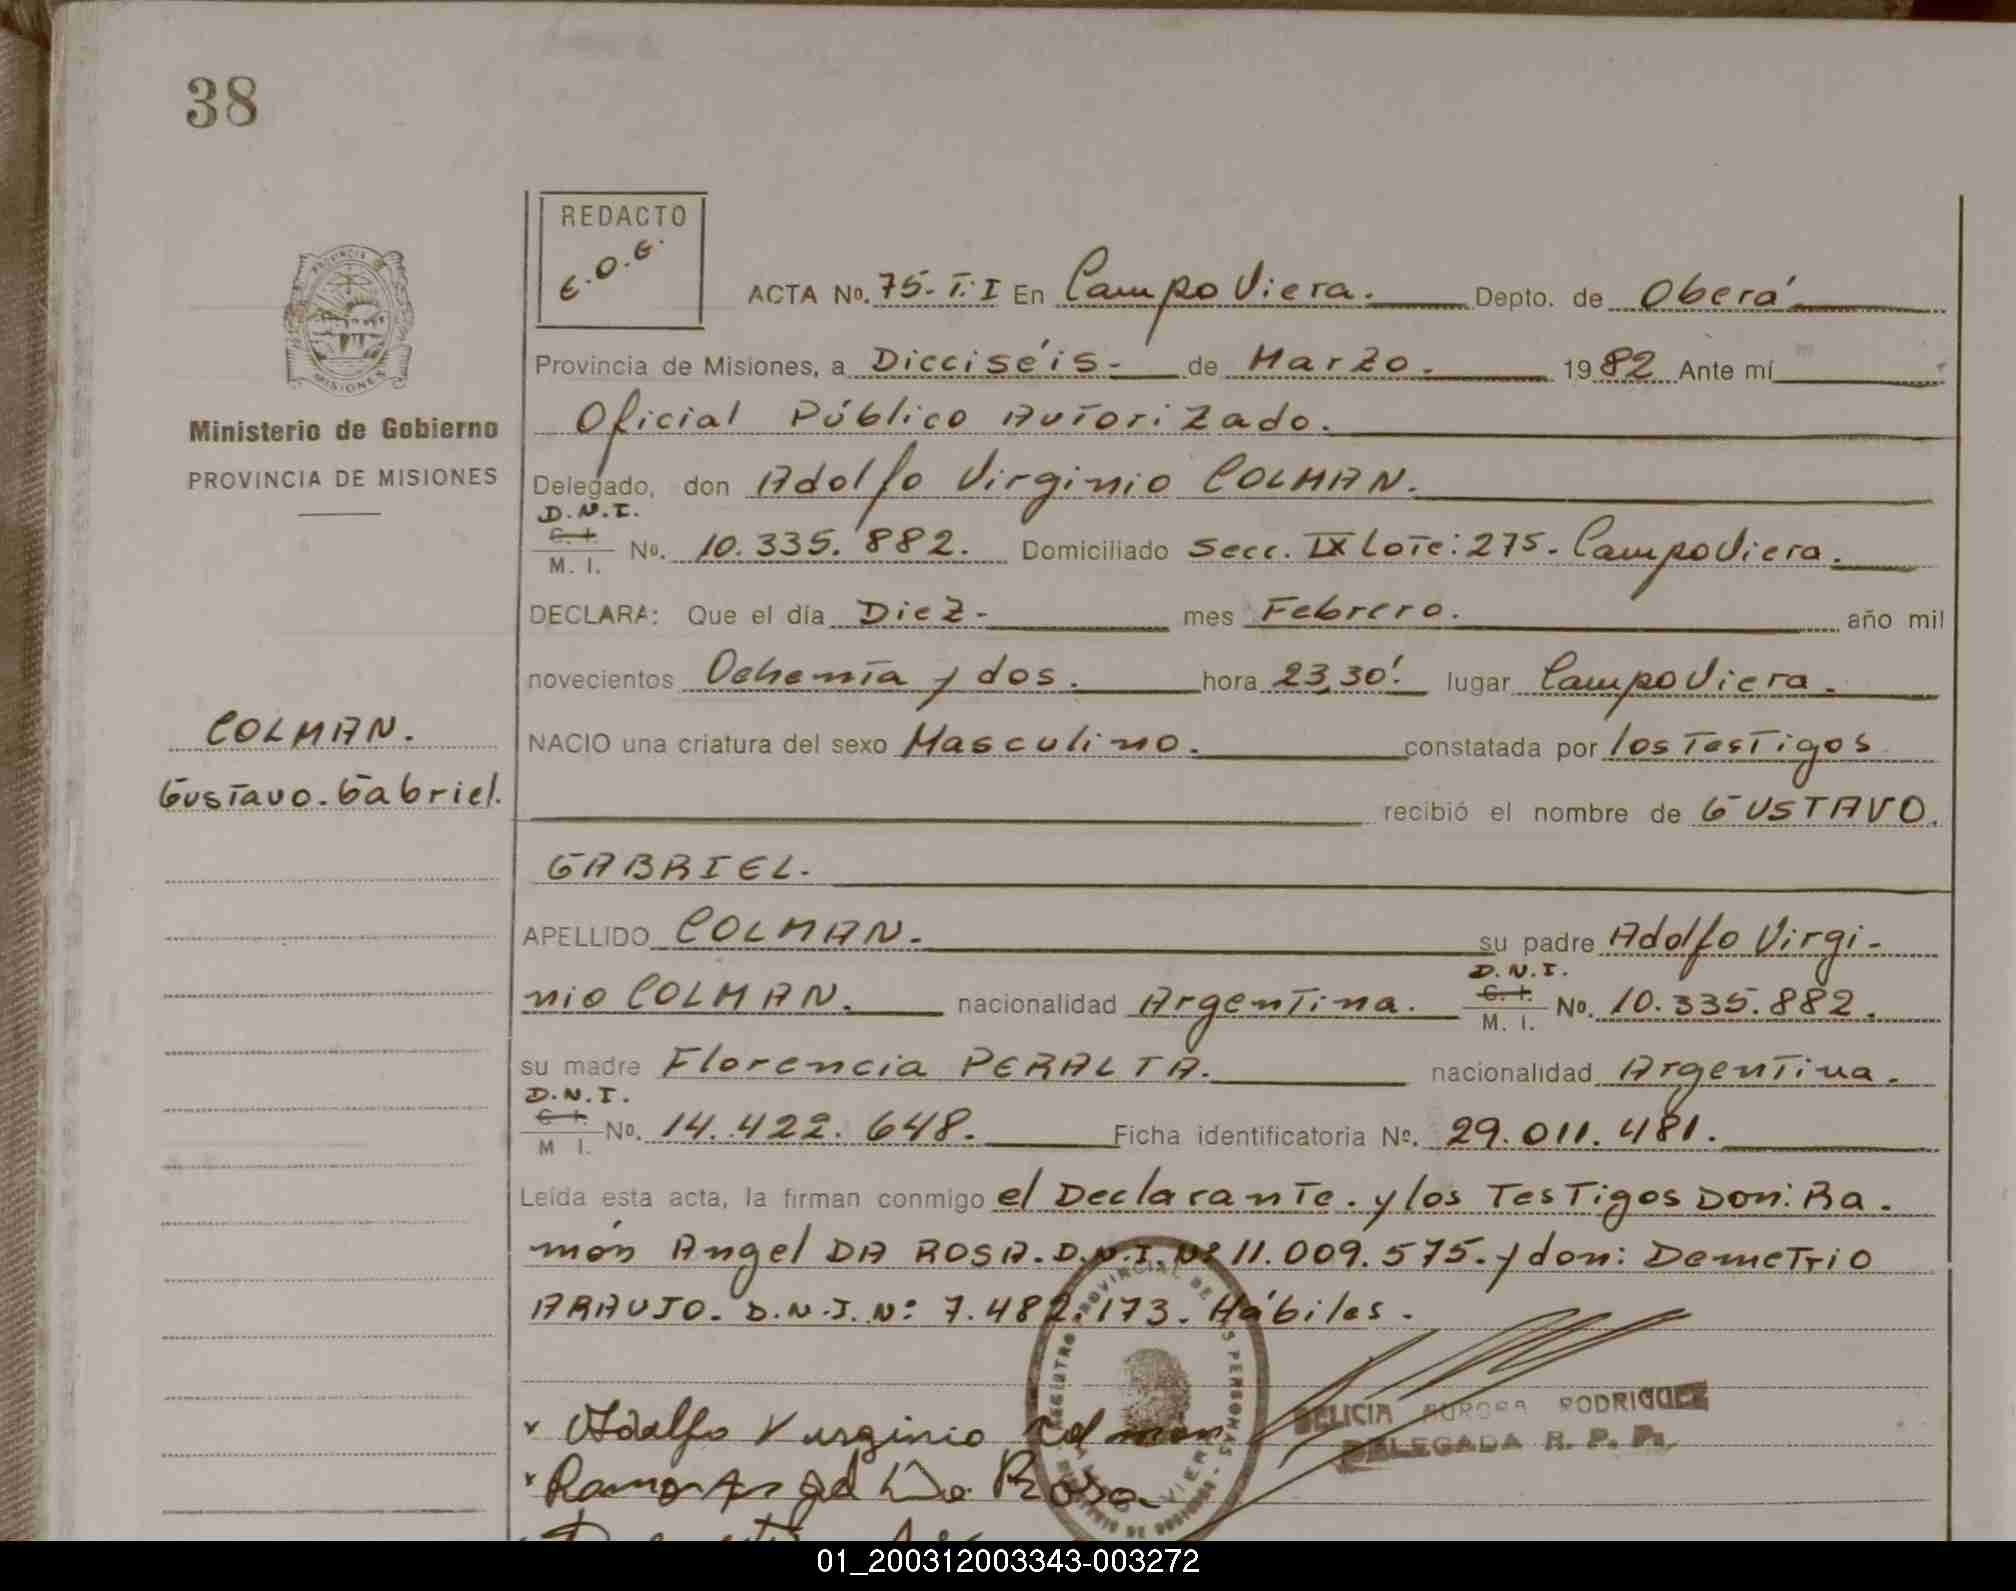 38
REDACTO
E.O.G.
ACTA No. 75-T: I En Campo Viera. Depto. de Oberá
Provincia de Misiones, a Dicciséis- de Marzo. 1982 Ante mí
Oficial Público Autorizado.
Ministerio de Gobierno
PROVINCIA DE MISIONES
Delegado, don Adolfo Virginio COLMAN.
D.N.I.
C. I.
M. I. No. 10.335.882. Domiciliado Secc. IX Lote: 275- Campo Viera.
DECLARA: Que el día Diez- mes Febrero. año mil
novecientos Ochenta y dos. hora 23,30! lugar Campo Viera.
COLMAN.
Gustavo. Gabriel.
NACIO una criatura del sexo Masculino. constatada por los Testigos
recibió el nombre de GUSTAVO.
GABRIEL.
APELLIDO COLMAN. su padre Adolfo Virgi-
D.N.I.
nio COLMAN. nacionalidad Argentina. C. I. M. I. No. 10.335.882.
su madre Florencia PERALTA. nacionalidad Argentina.
D.N.I.
C. I.
M I. No. 14.422.648. Ficha identificatoria No. 29.011.481.
Leída esta acta, la firman conmigo el Declarante. y los Testigos Don: Ra.
món Angel DA ROSA. D.N.I. Nº 11.009.575. y don: Demetrio
ARAUJO. D.N.I. N: 7.482.173. Hábiles.
Adolfo Virginio Colman
Ramon Angel Da Rosa
FELICIA AURORA RODRIGUEZ
DELEGADA R. P. P.
01_200312003343-003272